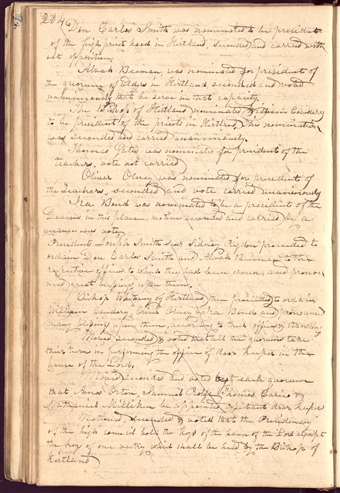 204
Don Carlos Smith was nominated to be president
of the high priest head in Kirtland, seconded and carried with
out opposition.
Alvah Beeman, was nominated for president of
the quorum of Elders in Kirtland seconded and voted
unanimously that he serve in that capacity.
The Bishop of Kirtland nominated William Cowdery
to be president of the priests in Kirtland, this nomination
was seconded and carried unanimously.
Thomas Gates was nominated for president of the
teachers, vote not carried
Oliver Olney was nominated for president of
the Teachers, seconded and vote carried unanimously
Ira Bond was nominated to be a president of the
Deacons in this place, motion seconded and carried by a
unanimous vote.
Presidents Joseph Smith Jun. Sidney Rigdon proceeded to
ordain Don Carlos Smith and Alvah Beeman to the
offices to which they had been chosen and pronoun
ced great blessings upon them.
Bishop Whitney of Kirtland then proceeded to ordain
William Cowdery, Oliver Olney & Ira Bond and pronounced
blessings upon them, according to their offices & standing
Moved seconded & voted that all the quorums take
their turn in performing the office of door keeper in the
house of the Lord.
Moved seconded and voted by each quorum
that Amos Orton, Samuel Rolfe, Thomas Carico &
Nathaniel Milliken be appointed assistant door keepers
Motioned seconded & voted that the Presidency
of the high council hold the keys of the house of the Lord except
the key of one vestry which shall be held by the Bishop of
Kirtland